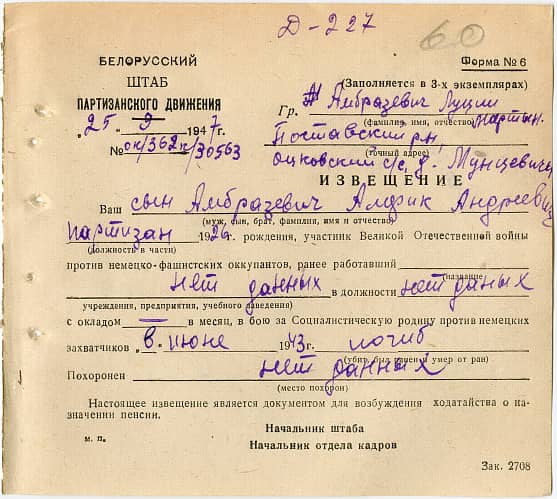 Д-227
60
БЕЛОРУССКИЙ
ШТАБ
ПАРТИЗАНСКОГО ДВИЖЕНИЯ
„25" 9 1947г.
№ ок/362к/30563
Форма № 6
(Заполняется в 3-х экземплярах)
Гр. Амбразевич Луции
(фамилия, имя, отчество) мартын.
Поставский р.н,
(точный адрес)
с/с, д. Мунцевичи
ИЗВЕЩЕНИЕ
Ваш сын Амбразевич Алфик Андреевич
(муж, сын, брат, фамилия, имя и отчество)
партизан 1926 г. рождения, участник Великой Отечественной войны
(должность в части)
против немецко-фашистских оккупантов, ранее работавший
(название)
нет данных в должности нет даных
учреждения, предприятия, учебного заведения)
с окладом — в месяц, в бою за Социалистическую родину против немецких
захватчиков „в" июне 1943г. погиб
(убит, был ранен и умер от ран)
Похоронен нет данных
(место похорон)
Настоящее извещение является документом для возбуждения ходатайства о на-
значении пенсии.
Начальник штаба
м. п.
Начальник отдела кадров
Зак. 2708